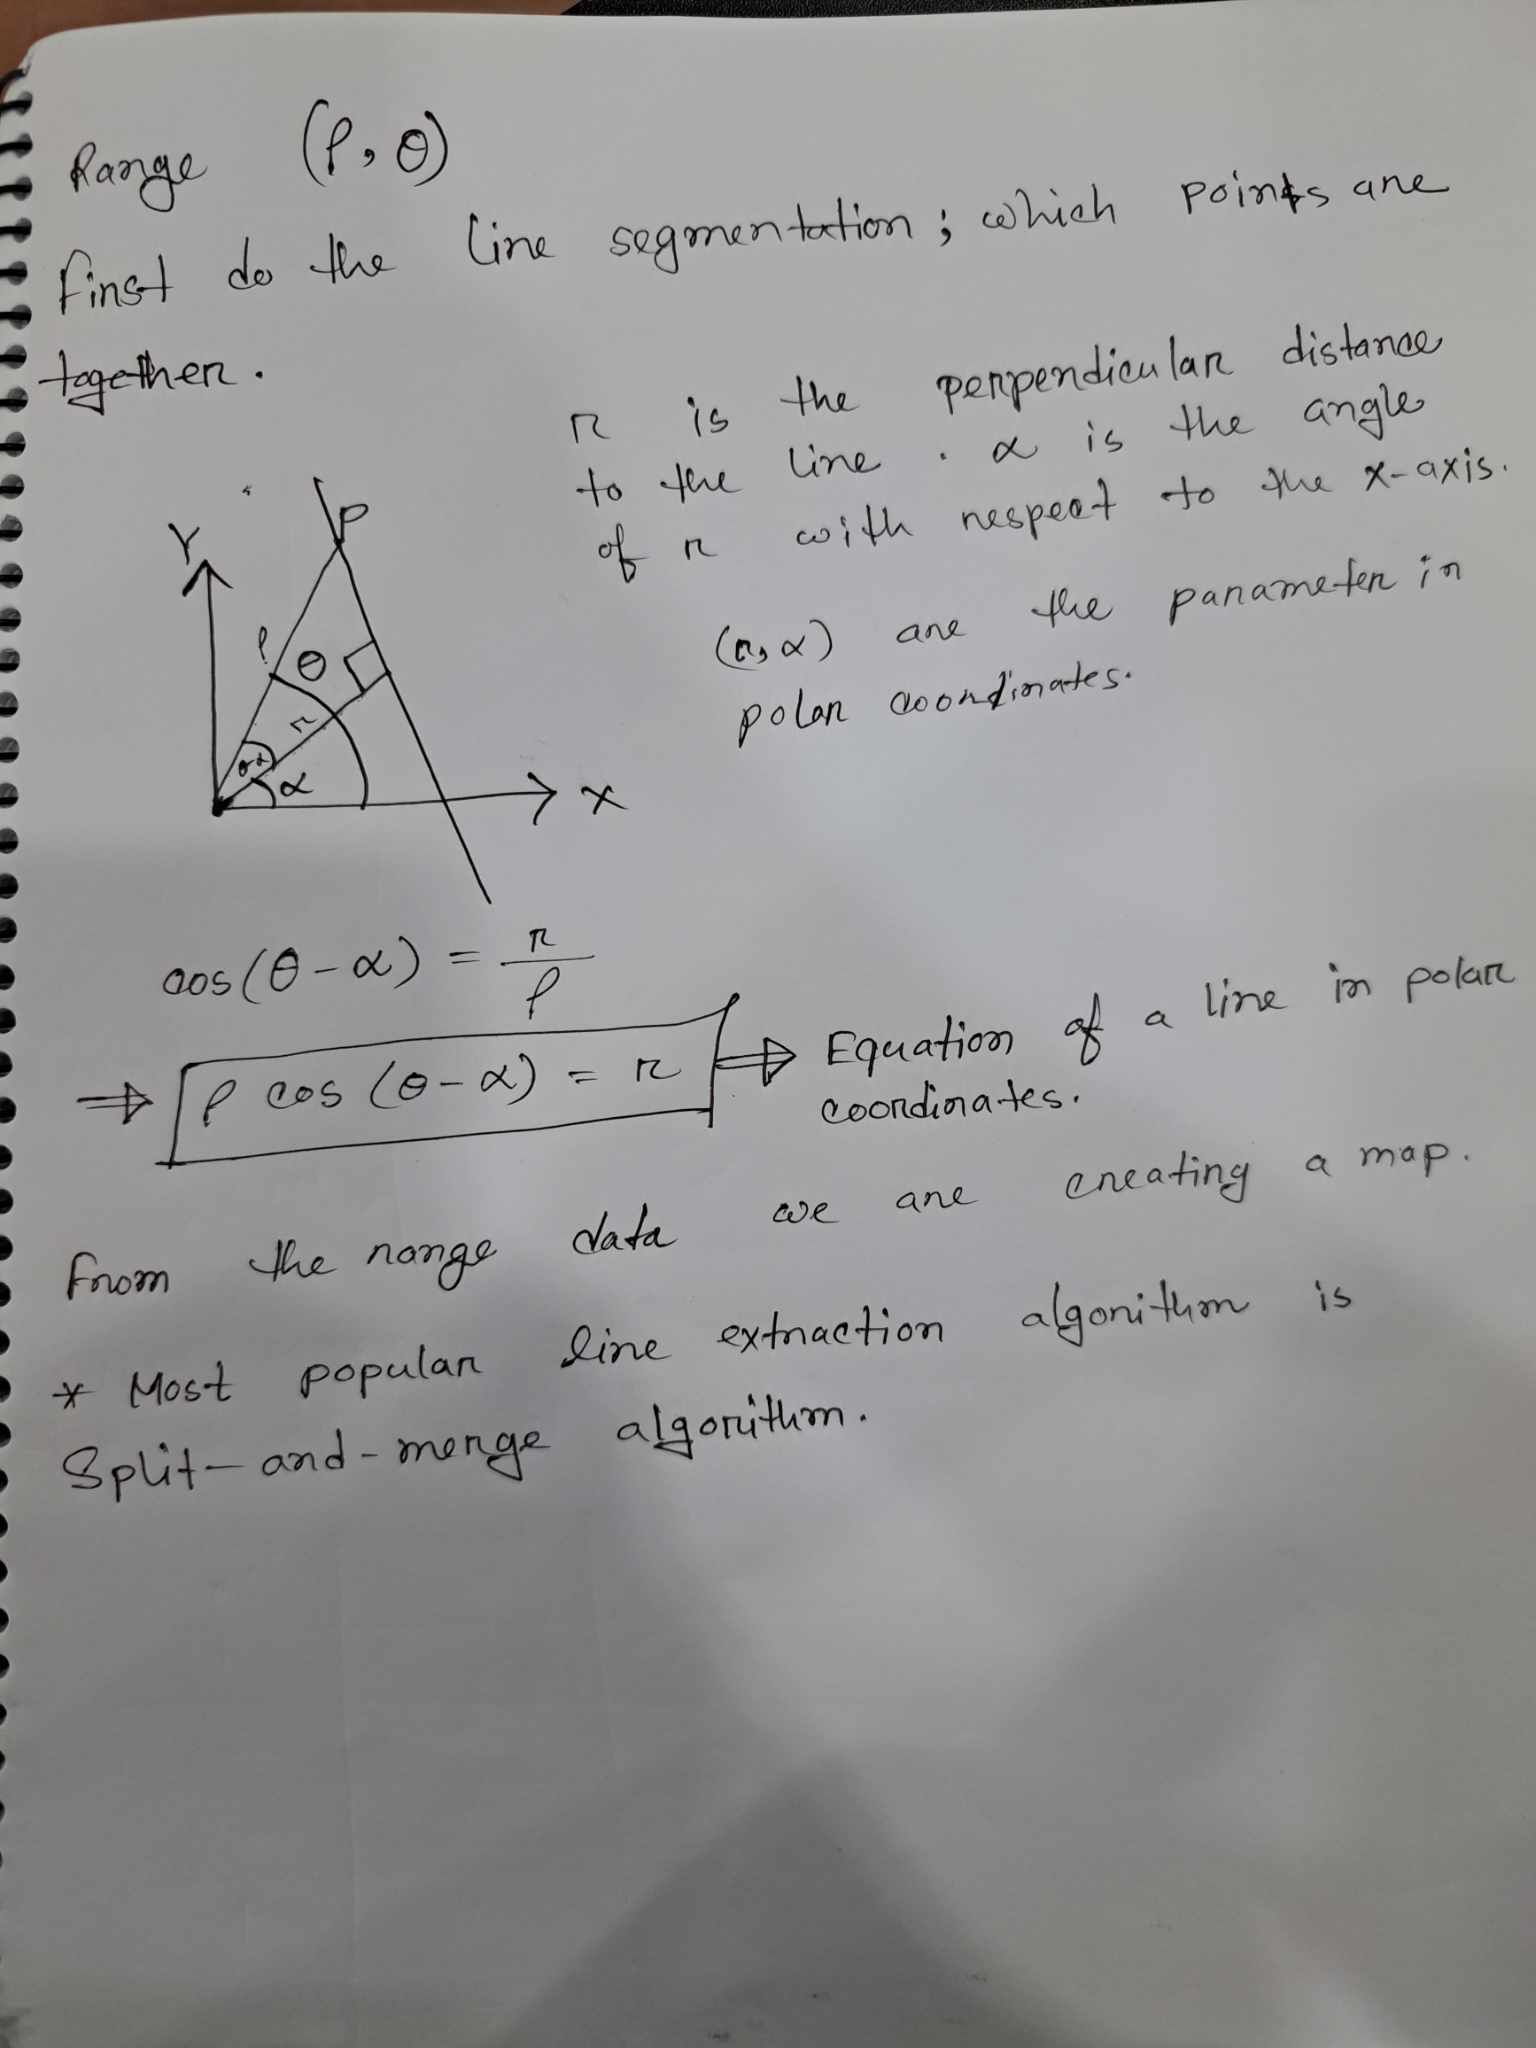 Range (ρ, θ)
First do the line segmentation; which points are
together.
r is the perpendicular distance
to the line. α is the angle
of r with respect to the x-axis.
(r, α) are the parameter in
polar coordinates.
Y
P
ρ
θ
r
θ-α
α
X
cos(θ - α) = r/ρ
⇒ ρ cos (θ - α) = r ⇒ Equation of a line in polar
coordinates.
From the range data we are creating a map.
* Most popular line extraction algorithm is
Split-and-merge algorithm.